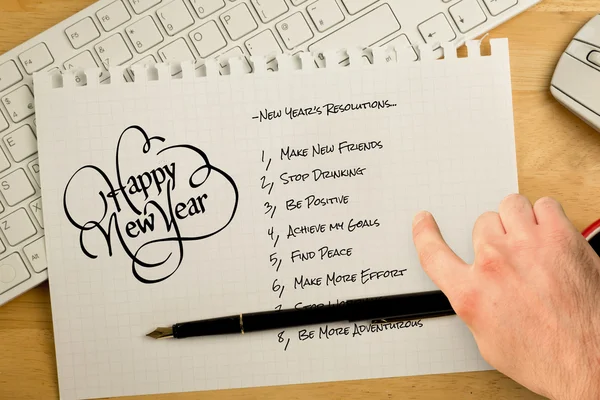 Happy
New Year
-New Year's Resolutions...
1, Make New Friends
2, Stop Drinking
3, Be Positive
4, Achieve my Goals
5, Find Peace
6, Make More Effort
7, Stop
8, Be More Adventurous